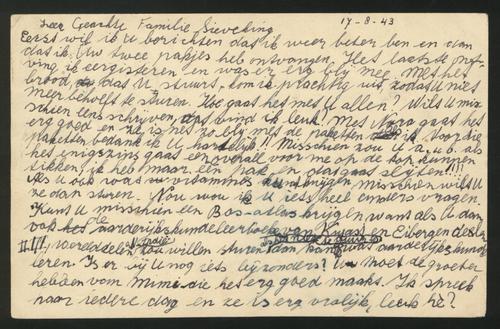 Zeer Geachte Familie Sieveking 17-8-43
Eerst wil ik U berichten dat ik weer beter ben en dan
dat ik Uw twee pakjes heb ontvangen. Het laatste ont-
ving ik eergisteren en was er erg blij mee. Met het
brood, dat U stuurt, kom ik prachtig uit, zodat U niet
meer behoeft te sturen. Hoe gaat het met U allen? Wilt U mis-
schien eens schrijven, dat vind ik leuk! Met Nora gaat het
erg goed en zij is net zo blij met de paketten. Voor die
paketten bedank ik U hartelijk!! Misschien zou U a.u.b. als
het enigszins gaat een overall voor me op de kop kunnen
tikken, ik heb maar een pak en dat gaat slijten!!!
Als U ook rans vitamines kunt krijgen misschien wilt U
ze dan sturen. Nou wou ik U iets heel anders vragen.
Kunt U misschien een Bos-atlas krijgen want als U dan
ook het aardrijkskundeleerboek van Kwast en Eibergen deel
II, III, werelddelen zou willen sturen dan kan ik wat aardrijkskunde
leren. Is er bij U nog iets bijzonders? U moet de groeten
hebben van Mimi die het erg goed maakt. Ik spreek
haar iedere dag en ze is erg vrolijk, leuk hè?